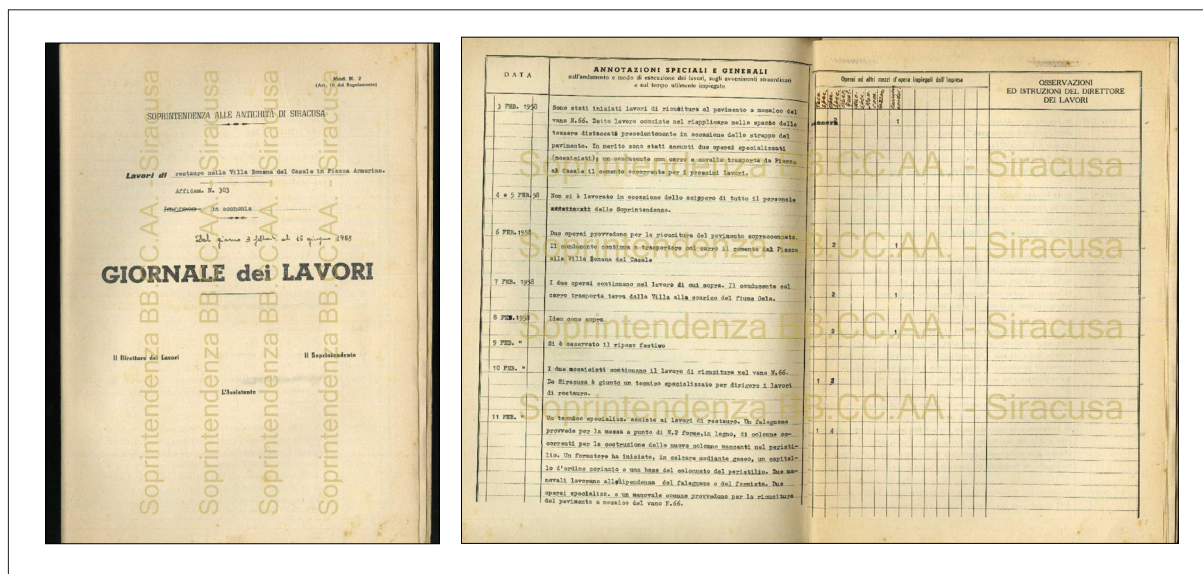 Mod. N. 2
(Art. 18 del Regolamento)
SOPRINTENDENZA ALLE ANTICHITÀ DI SIRACUSA
Lavori di restauro nella Villa Romana del Casale in Piazza Armerina.
Affidam. N. 303
Impresa in economia
Dal giorno 3 febbraio al 15 giugno 1958
GIORNALE dei LAVORI
Il Direttore dei Lavori
Il Soprintendente
L'Assistente
Soprintendenza BB.CC.AA. - Siracusa
Soprintendenza BB.CC.AA. - Siracusa
Soprintendenza BB.CC.AA. - Siracusa
Soprintendenza BB.CC.AA. - Siracusa
DATA
ANNOTAZIONI SPECIALI E GENERALI
sull'andamento e modo di esecuzione dei lavori, sugli avvenimenti straordinari
e sul tempo utilmente impiegato
3 FEB. 1958
Sono stati iniziati lavori di ricucitura al pavimento a mosaico del
vano N.66. Detto lavoro consiste nel riapplicare nello spazio delle
tessere distaccate precedentemente in occasione dello strappo del
pavimento. In merito sono stati assunti due operai specializzati
(mosaicisti); un conducente con carro e cavallo trasporta da Piazza
al Casale il cemento occorrente per i prossimi lavori.
4 e 5 FEB.58
Non si è lavorato in occasione dello sciopero di tutto il personale
delle Soprintendenze.
6 FEB.1958
Due operai provvedono per la ricucitura del pavimento sopraccennato.
Il conducente continua a trasportare col carro il cemento dal Piazza
alla Villa Romana del Casale
7 FEB. 1958
I due operai continuano nel lavoro di cui sopra. Il conducente col
carro trasporta terra dalla Villa allo scarico del fiume Gela.
8 FEB.1958
Idem come sopra
9 FEB. "
Si è osservato il riposo festivo
10 FEB. "
I due mosaicisti continuano il lavoro di ricucitura nel vano N.66.
Da Siracusa è giunto un tecnico specializzato per dirigere i lavori
di restauro.
11 FEB. "
Un tecnico specializz. assiste ai lavori di restauro. Un falegname
provvede per la messa a punto di N.2 forme,in legno, di colonne oc-
correnti per la costruzione delle nuove colonne mancanti nel peristi-
lio. Un formatore ha iniziato, in calcare mediante gesso, un capitel-
lo d'ordine corinzio e una base del colonnato del peristilio. Due ma-
novali lavorano alle dipendenze del falegname e del formista. Due
operai specializz. e un manovale comune provvedono per la ricucitura
del pavimento a mosaico del vano N.66.
Operai ed altri mezzi d'opera impiegati dall'Impresa
OSSERVAZIONI
ED ISTRUZIONI DEL DIRETTORE
DEI LAVORI
1
2 1
2 1
2 1
1
1 4
Soprintendenza BB.CC.AA. - Siracusa
Soprintendenza BB.CC.AA. - Siracusa
Soprintendenza BB.CC.AA. - Siracusa